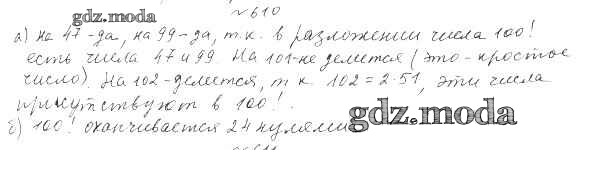 №610
gdz.moda
а) на 47-да, на 99-да, т.к. в разложении числа 100!
есть числа 47 и 99. На 101-не делится (это-простое
число). На 102-делится, т к 102=2·51, эти числа
присутствуют в 100!.
б) 100! оканчивается 24 нулями
gdz.moda